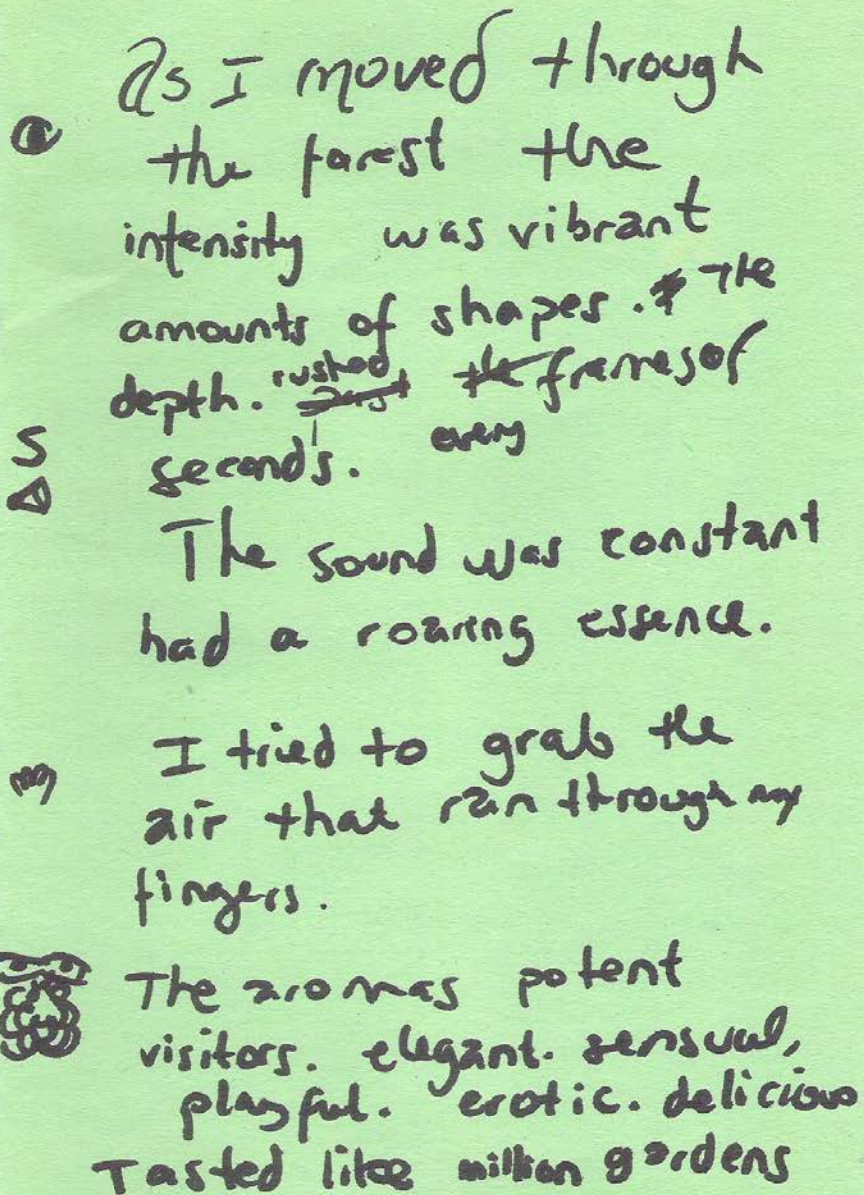 As I moved through
the forest the
intensity was vibrant
amounts of shapes. The
depth. rushed frames of
every
seconds.
The sound was constant
had a roaring essence.
I tried to grab the
air that ran through my
fingers.
The aromas potent
visitors. elegant. sensual,
playful. erotic. delicious
Tasted like million gardens